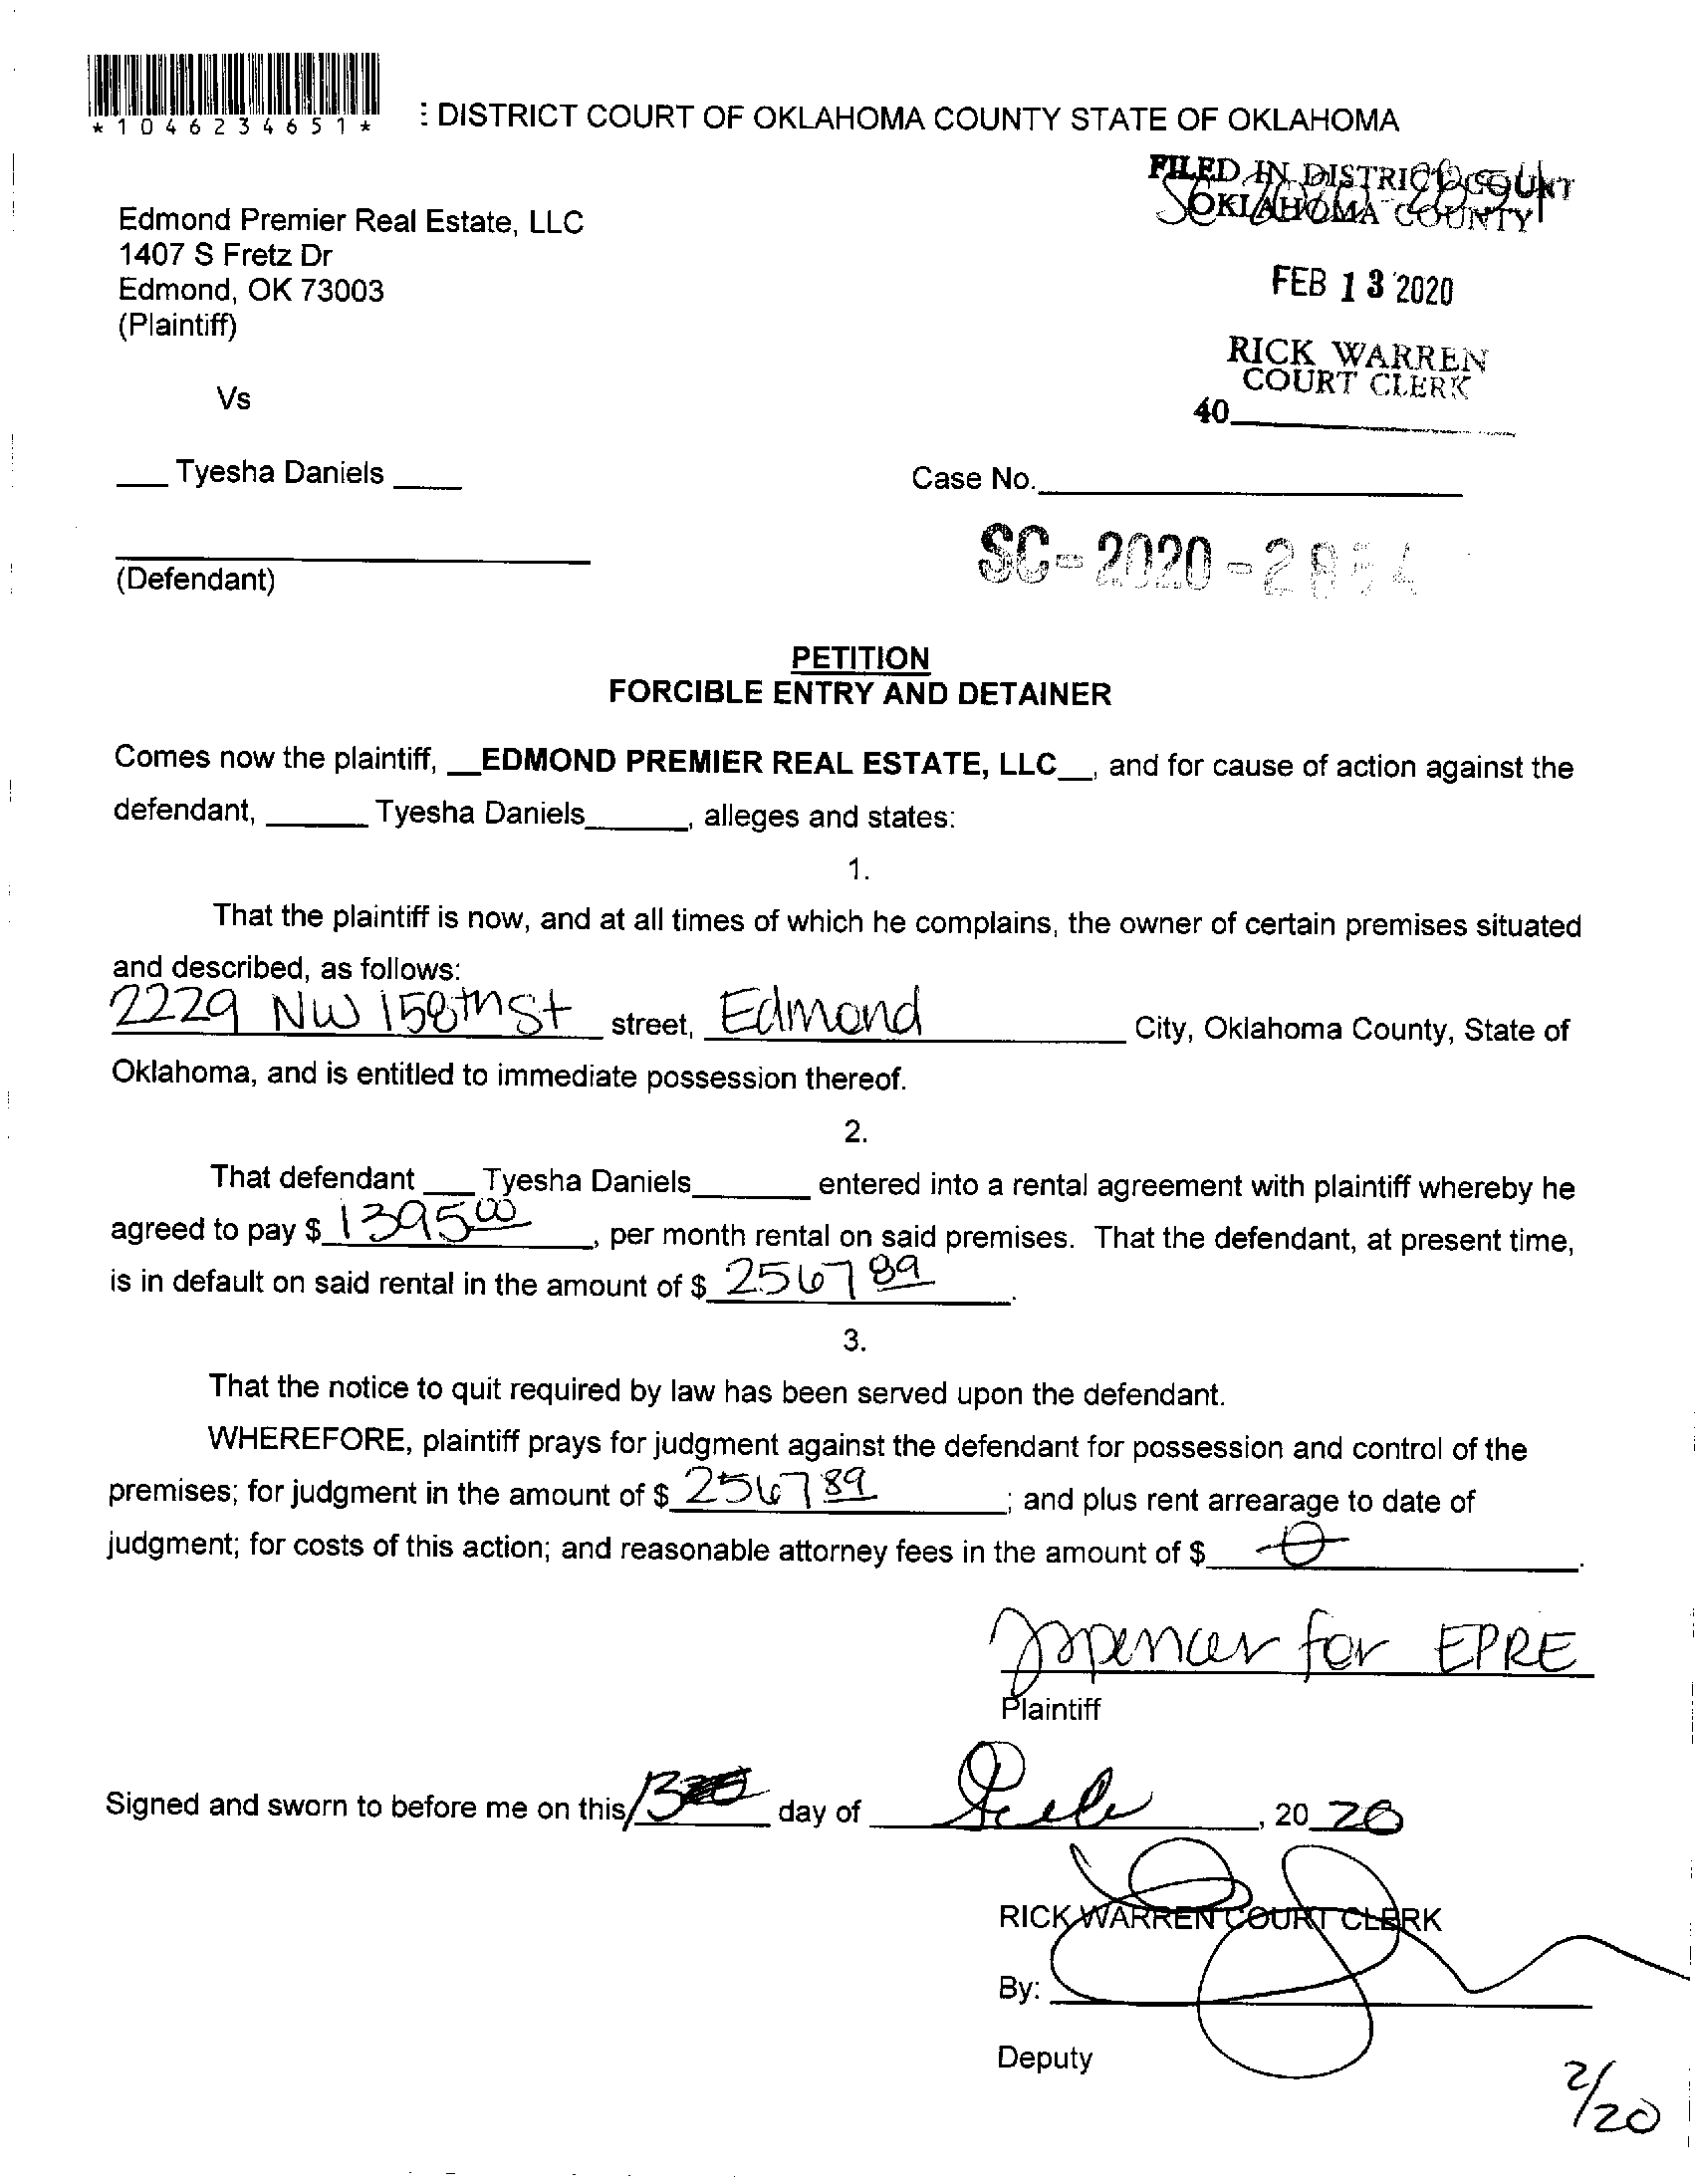 *1046234651*
: DISTRICT COURT OF OKLAHOMA COUNTY STATE OF OKLAHOMA
FILED IN DISTRICT COURT
OKLAHOMA COUNTY
Edmond Premier Real Estate, LLC
1407 S Fretz Dr
Edmond, OK 73003
(Plaintiff)
FEB 13 2020
RICK WARREN
COURT CLERK
40
Vs
Tyesha Daniels
Case No.
SC-2020-2854
(Defendant)
PETITION
FORCIBLE ENTRY AND DETAINER
Comes now the plaintiff, __EDMOND PREMIER REAL ESTATE, LLC__, and for cause of action against the
defendant, ______ Tyesha Daniels______, alleges and states:
1.
That the plaintiff is now, and at all times of which he complains, the owner of certain premises situated
and described, as follows:
2229 NW 158th St street, Edmond City, Oklahoma County, State of
Oklahoma, and is entitled to immediate possession thereof.
2.
That defendant ___ Tyesha Daniels______ entered into a rental agreement with plaintiff whereby he
agreed to pay $ 1395 00, per month rental on said premises. That the defendant, at present time,
is in default on said rental in the amount of $ 2567 89.
3.
That the notice to quit required by law has been served upon the defendant.
WHEREFORE, plaintiff prays for judgment against the defendant for possession and control of the
premises; for judgment in the amount of $ 2567 89; and plus rent arrearage to date of
judgment; for costs of this action; and reasonable attorney fees in the amount of $ 0.
JSpencer for EPRE
Plaintiff
Signed and sworn to before me on this 13 day of Feb, 20 20
RICK WARREN COURT CLERK
By:
Deputy
2/20